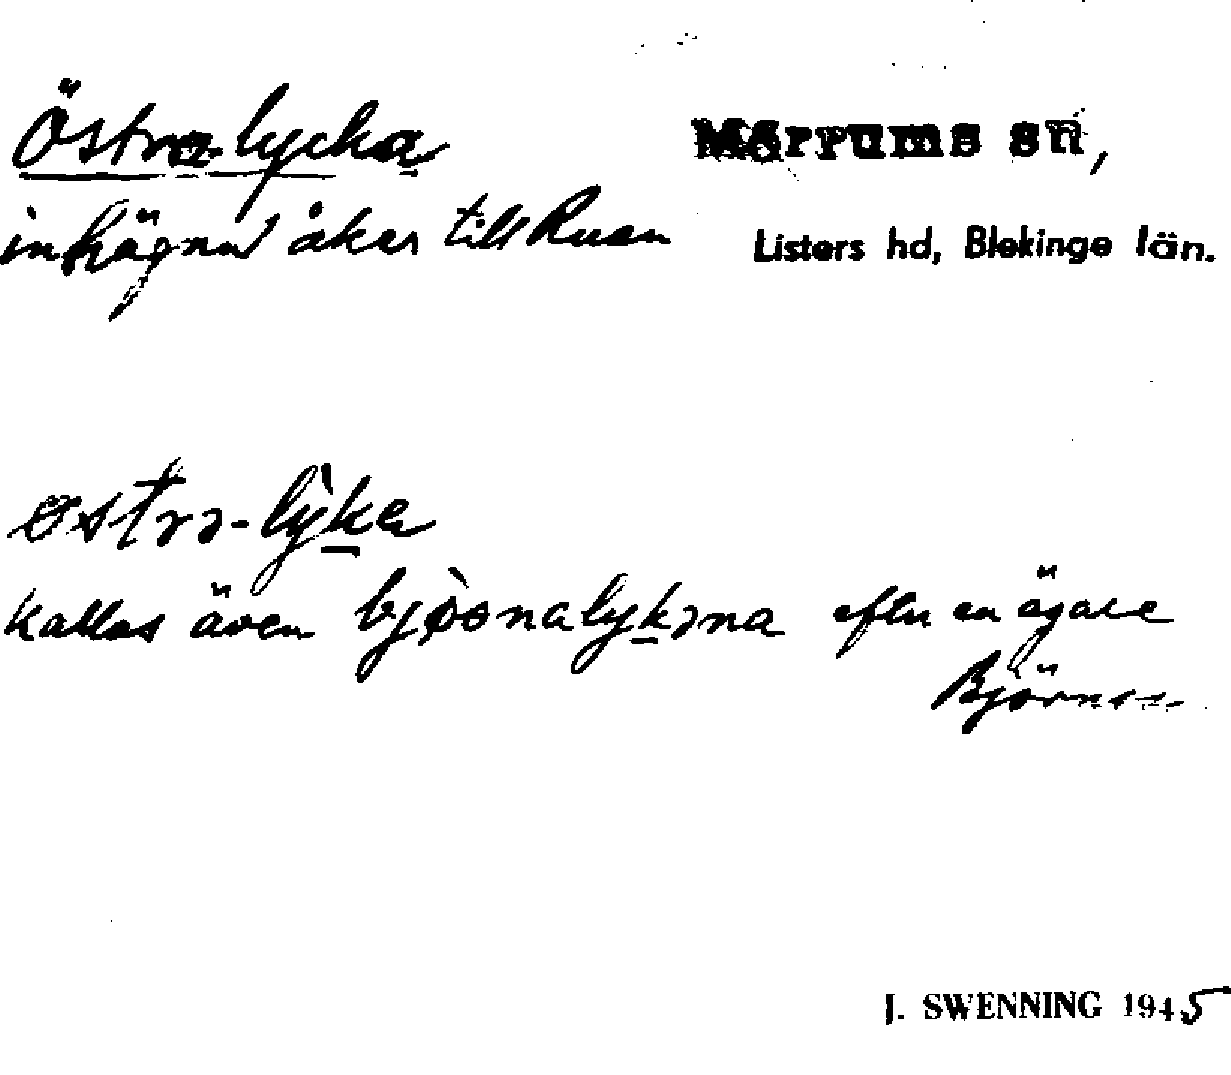 Östra-lycka
Mörrums sn,
inhägnad åker till Ruan
Listers hd, Blekinge län.
østrɔ-lỳka
kallas även bjɵ̀ɵnalykɔna efter en ägare
Björnsson
J. SWENNING 1945